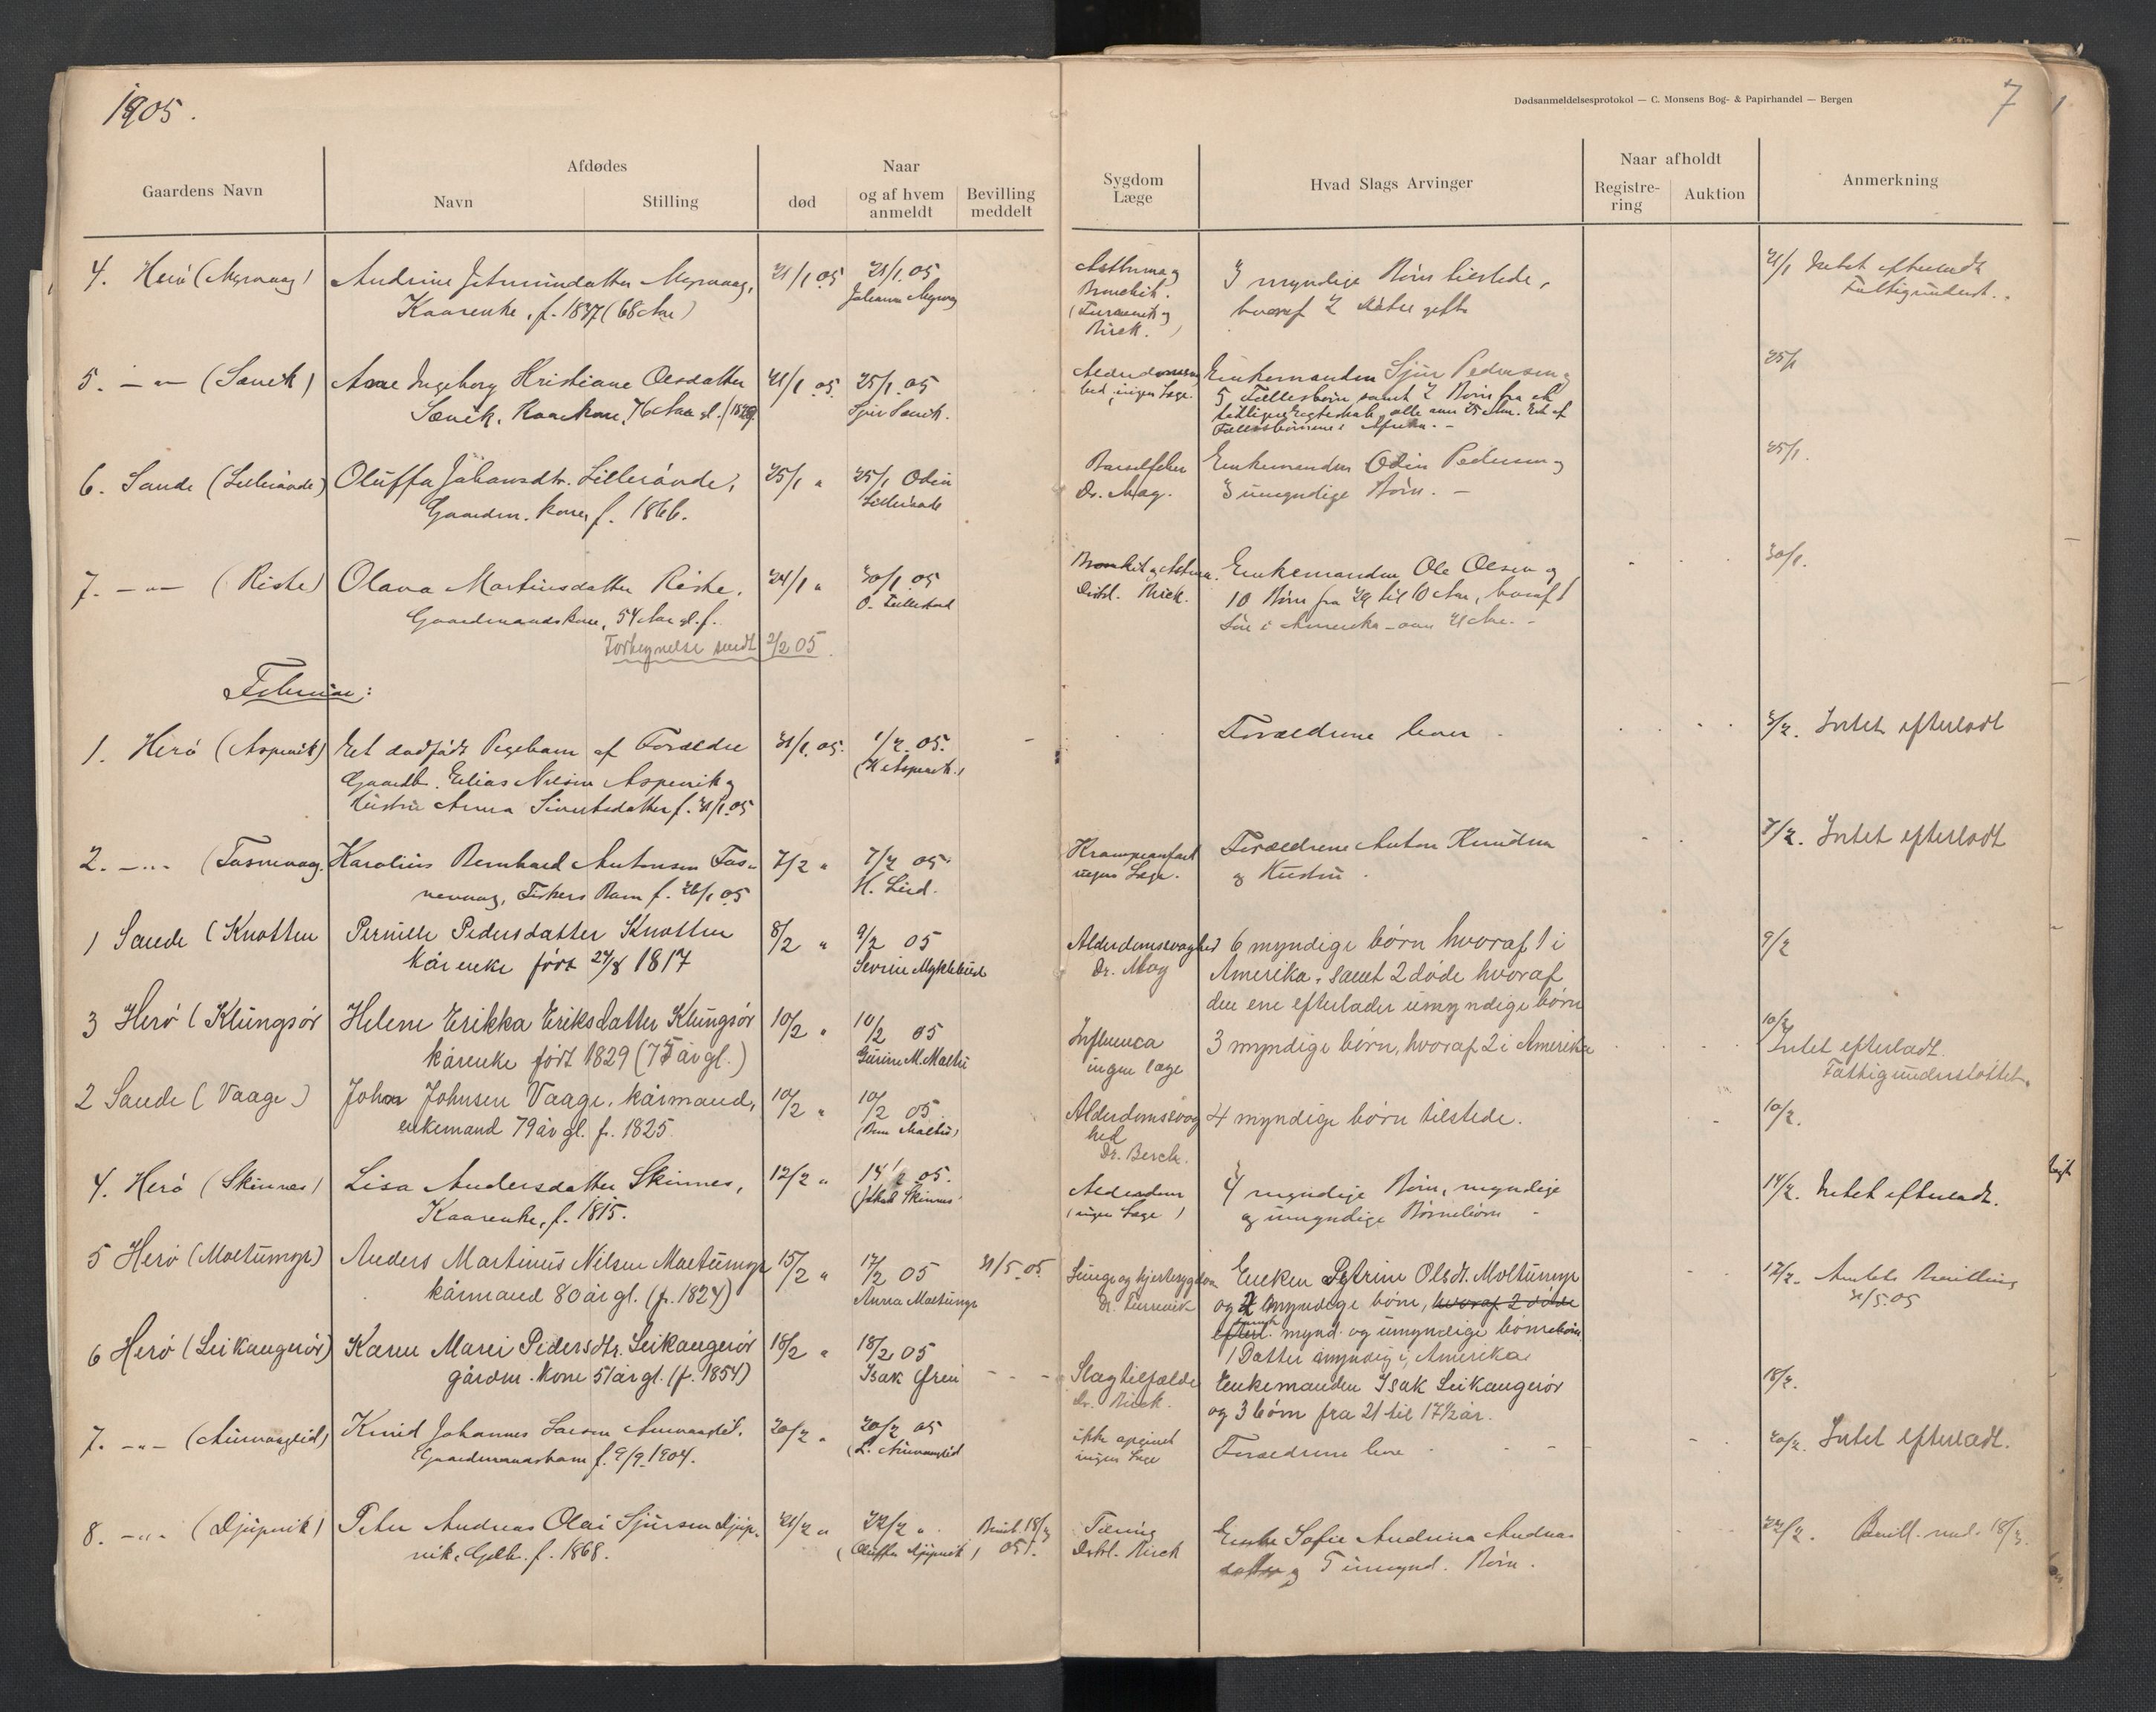 1905.
7
Dødsanmeldelsesprotokol — C. Monsens Bog- & Papirhandel — Bergen
Gaardens Navn
Afdødes
Navn
Stilling
Naar
død
og af hvem anmeldt
Bevilling meddelt
Sygdom
Læge
Hvad Slags Arvinger
Naar afholdt
Registrering
Auktion
Anmerkning
4. Herö (Myrvaag) Andrine Myrvaag, 21/1 05 21/1 05 Asthma og 3 myndige Börn tilstede, 21/1 Intet efterladt
Kaarenke, f. 1837 (68 Aar) Johanne Myrvaag Bronchit. hvoraf 2 gifte Fattigunderst.
5. -"- (Sævik) Ane Ingeborg Kristiane Olsdatter 21/1 05. 25/1 05 Enkemanden Sjur Pedersen og 25/1
Sævik, Kaarkone, 76 Aar gl. Sjur Sævik. ingen Læge. 5 Fællesbörn samt 2 Börn fra et
tidligere Egteskab, alle over 25 Aar. Et af
Fællesbörnene i Afrika. -
6. Sande (Lillerönde) Oluffa Johansdtr. Lillerönde, 25/1 " 25/1 Odin Barselfeber Enkemanden Odin Pedersen og 25/1.
Gaardm. kone, f. 1866. Lillerönde Dr. Mag. 3 umyndige Börn. -
7. -"- (Riste) Olava Martinusdatter Riste, 24/1 " 30/1 05 Bronkit og Astma. Enkemanden Ole Olsen og 30/1.
Gaardmandskone, 54 Aar gl. Distl. Birck. 10 Börn fra 29 til 10 Aar, hvoraf 1
Sön i Amerika - over 21 Aar. -
Forkynnelse sendt 2/2 05.
Februar:
1. Herö (Aspevik) Et dödfödt Pigebarn af Forældre 31/1 05. 1/2. 05. - Forældrene lever 3/2. Intet efterladt
Gaardb. Elias Nilsen Aspevik og (K Aspevik.)
Hustru Anna Sivertsdatter f. 31/1 05
2. -"- (Tasnevaag. Karolius Bernhard Antonsen Tas- 7/2 " 7/2 05 Krampeanfald Forældrene Anton Knudsen 7/2. Intet efterladt
nevaag, Fiskers Barn f. 26/1 05 ingen Læge. og Hustru.
1 Sande (Knotten Pernille Pedersdatter Knotten 8/2 " 9/2 05 Alderdomssvaghed 6 myndige børn hvoraf 1 i 9/2
kårenke født 24/8 1817 Severine Myklebust Dr. Mag Amerika, samt 2 døde hvoraf
den ene efterlader umyndige børn
3 Herö (Klungsör Helene Erikka Eriksdatter Klungsör 10/2 " 10/2 05 Influenca 3 myndige børn, hvoraf 2 i Amerika 10/2 Intet efterladt.
kårenke født 1829 (75 år gl.) Gurine M. Moltu ingen læge Fattigunderstöttet.
2 Sande (Vaage) Johan Johnsen Vaage, kårmand, 10/2 " 10/2 05 Alderdomssvaghed 4 myndige børn tilstede. 10/2.
enkemand 79 år gl. f. 1825. Dr. Berch.
4. Herö (Skinnes) Lisa Andersdatter Skinnes, 12/2 " 14/2 05. Alderdom 4 myndige Börn, myndige 14/2. Intet efterladt.
Kaarenke, f. 1815. (Jakob Skinnes) (ingen Læge) og umyndige Börnebörn -
5 Herö (Moltumyr) Anders Martinus Nilsen Moltumyr 15/2 " 17/2 05 31/5. 05. Lunge og hjertesygdom Enken Petrine Olsdt. Moltumyr 17/2. Amtets Bevilling
kårmand 80 år gl. (f. 1824) Anna Moltumyr og 2 myndige børn, hvoraf 2 døde 31/5. 05
efterl. samt mynd. og umyndige børnebörn
1 Datter myndig i Amerika
6 Herö (Leikangerör) Karen Marei Pedersdtr. Leikangerör 18/2 " 18/2 05 - - - Slagtilfælde Enkemanden Isak Leikangerör 18/2.
gårdm. kone 51 år gl. (f. 1854) Isak Dr. Birck. og 3 børn fra 21 til 17½ år.
7. -"- (Aurvaaglid) Knud Johannes Larsen Aurvaaglid, 20/2 " 20/2 05 ikke opgivet Forældrene leve 20/2. Intet efterladt.
Gaardmandsbarn f. 9/9 1904. (L. Aurvaaglid ingen Læge
8. -"- (Djupvik) Peter Andreas Olai Sjursen Djup- 21/2 " 22/2 " Tæring Enke Sofie Andrina Andreas 22/2. Bevill. med. 18/3.
vik, Gdbr. f. 1868. (Oluffa Djupvik) 05. Distrl. Birck datter og 5 umynd. Börn.